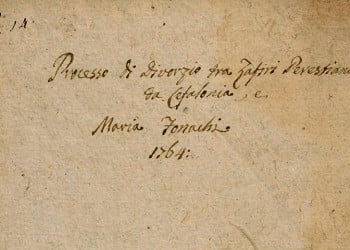 14
Processo di divorzio tra Zafiri Perestiano
da Cefalonia, e
Maria Jonachi
1764: